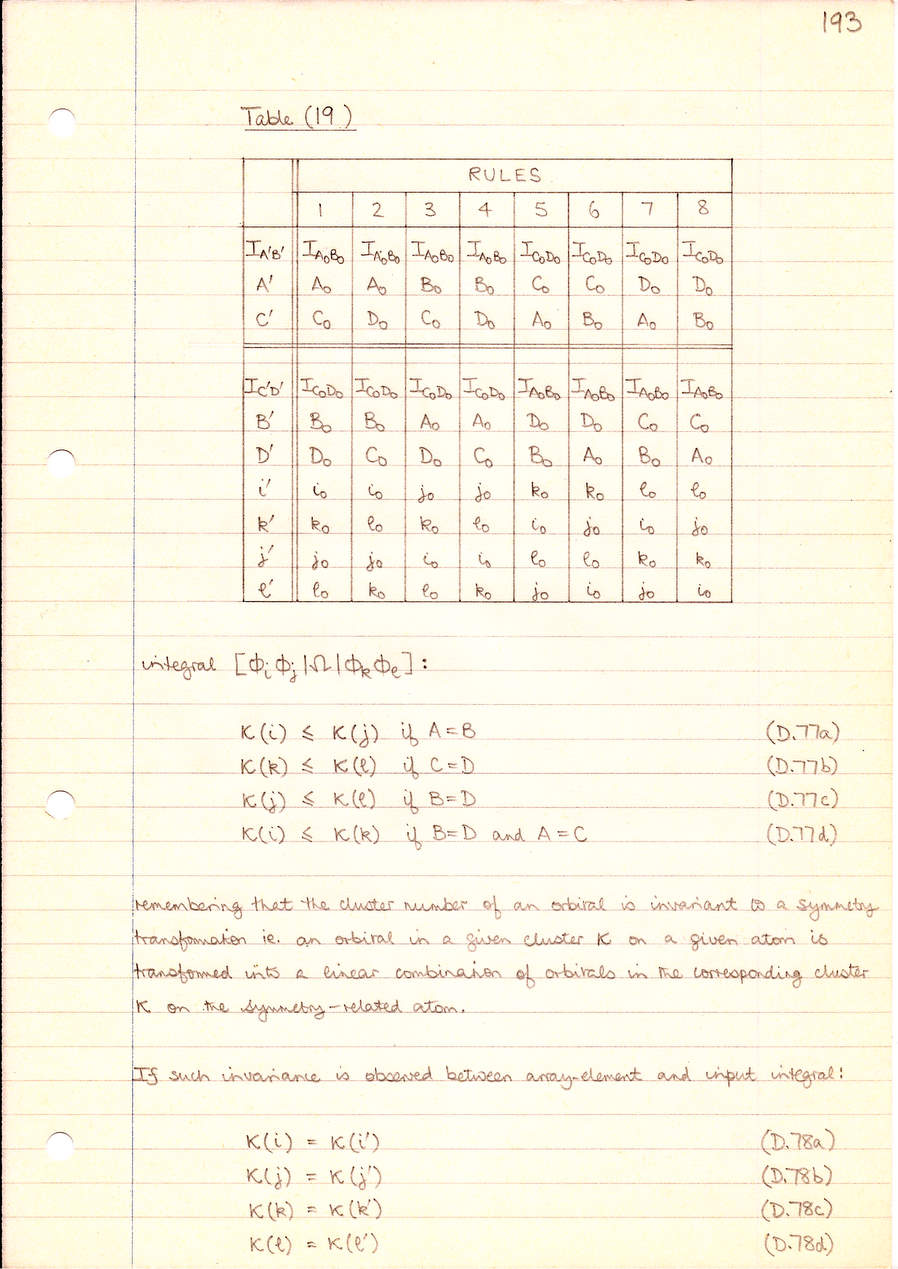 193
Table (19)
RULES
1 2 3 4 5 6 7 8
I_A'B' I_A₀B₀ I_A₀B₀ I_A₀B₀ I_A₀B₀ I_C₀D₀ I_C₀D₀ I_C₀D₀ I_C₀D₀
A' A₀ A₀ B₀ B₀ C₀ C₀ D₀ D₀
C' C₀ D₀ C₀ D₀ A₀ B₀ A₀ B₀
I_C'D' I_C₀D₀ I_C₀D₀ I_C₀D₀ I_C₀D₀ I_A₀B₀ I_A₀B₀ I_A₀B₀ I_A₀B₀
B' B₀ B₀ A₀ A₀ D₀ D₀ C₀ C₀
D' D₀ C₀ D₀ C₀ B₀ A₀ B₀ A₀
i' i₀ i₀ j₀ j₀ k₀ k₀ ℓ₀ ℓ₀
k' k₀ ℓ₀ k₀ ℓ₀ i₀ j₀ i₀ j₀
j' j₀ j₀ i₀ i₀ ℓ₀ ℓ₀ k₀ k₀
ℓ' ℓ₀ k₀ ℓ₀ k₀ j₀ i₀ j₀ i₀
integral [ΦᵢΦⱼ|Ω|ΦₖΦ_ℓ]:
K(i) ≤ K(j) if A=B (D.77a)
K(k) ≤ K(ℓ) if C=D (D.77b)
K(j) ≤ K(ℓ) if B=D (D.77c)
K(i) ≤ K(k) if B=D and A=C (D.77d)
remembering that the cluster number of an orbital is invariant to a symmetry
transformation ie. an orbital in a given cluster K on a given atom is
transformed into a linear combination of orbitals in the corresponding cluster
K on the symmetry-related atom.
If such invariance is observed between array-element and input integral:
K(i) = K(i') (D.78a)
K(j) = K(j') (D.78b)
K(k) = K(k') (D.78c)
K(ℓ) = K(ℓ') (D.78d)